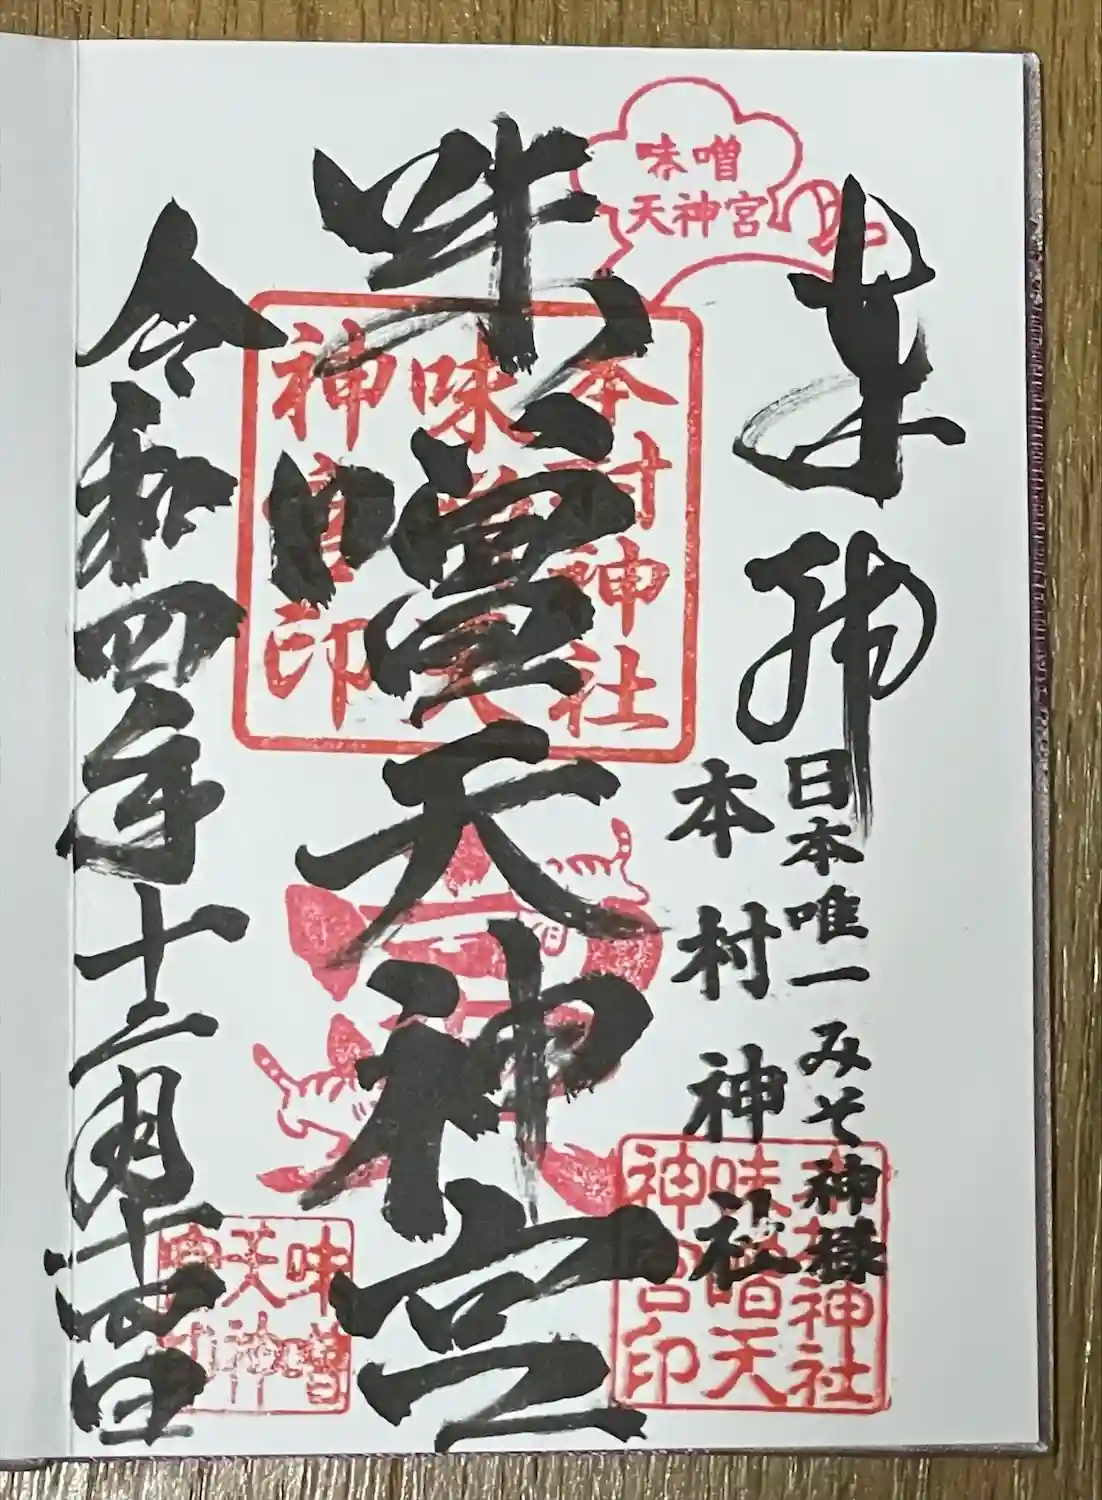 奉拝
日本唯一みそ神様
本村神社
味噌天神宮
令和四年十二月十一日
味噌
天神宮
本村神社
味噌天
神宮印
本村神社
味噌天
神宮印
味噌
天神
宮印